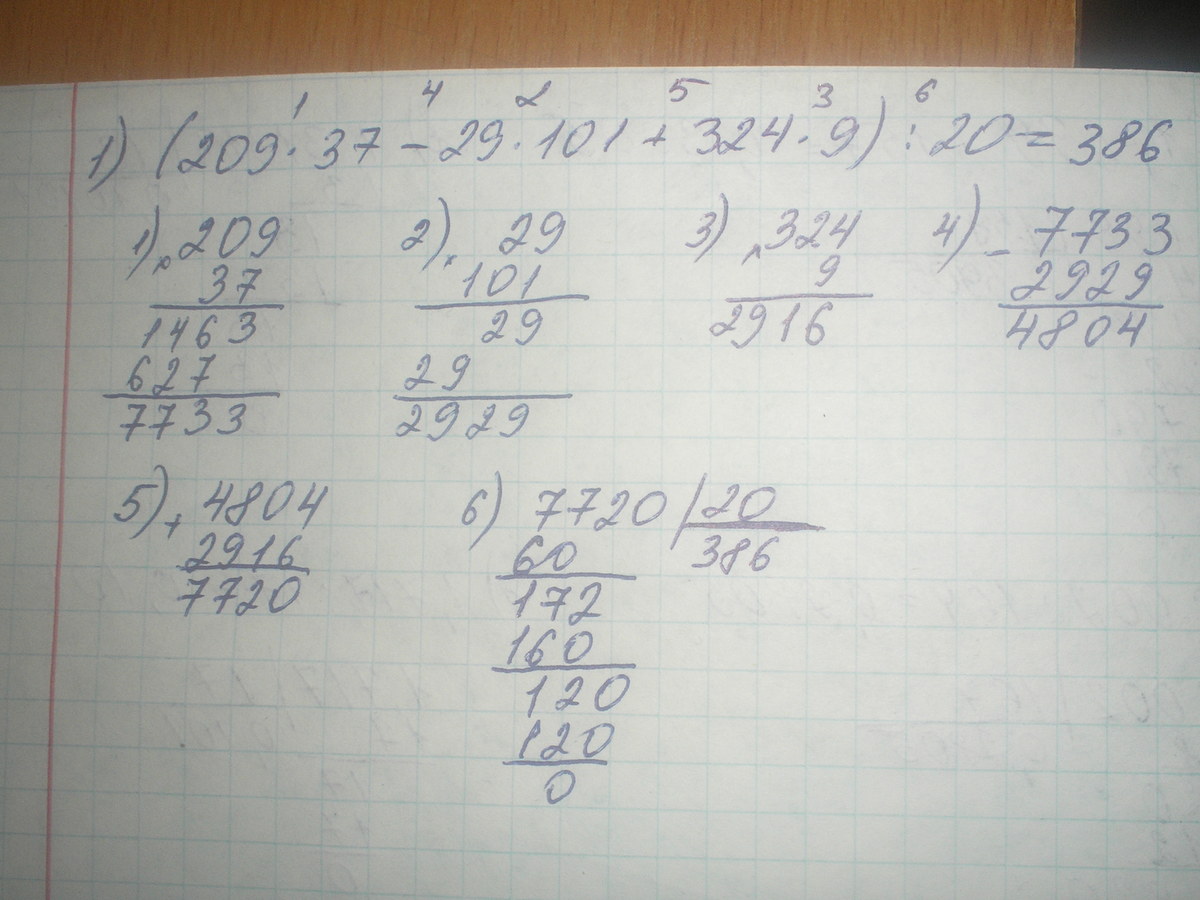 1 4 2 5 3 6
1) (209 · 37 - 29 · 101 + 324 · 9) : 20 = 386
1) × 209
37
1463
627
7733
2) × 29
101
29
29
2929
3) × 324
9
2916
4) - 7733
2929
4804
5) + 4804
2916
7720
6) 7720 | 20
60 386
172
160
120
120
0